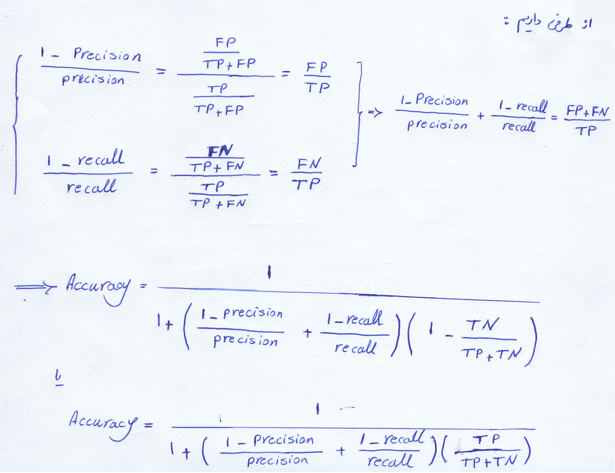 از طرفی داریم :
(1 - Precision)/precision = (FP/(TP+FP))/(TP/(TP+FP)) = FP/TP
(1 - recall)/recall = (FN/(TP+FN))/(TP/(TP+FN)) = FN/TP
⇒ (1 - Precision)/precision + (1 - recall)/recall = (FP+FN)/TP
⟹ Accuracy = 1/(1 + ((1 - precision)/precision + (1 - recall)/recall)(1 - TN/(TP+TN)))
یا
Accuracy = 1/(1 + ((1 - Precision)/precision + (1 - recall)/recall)(TP/(TP+TN)))